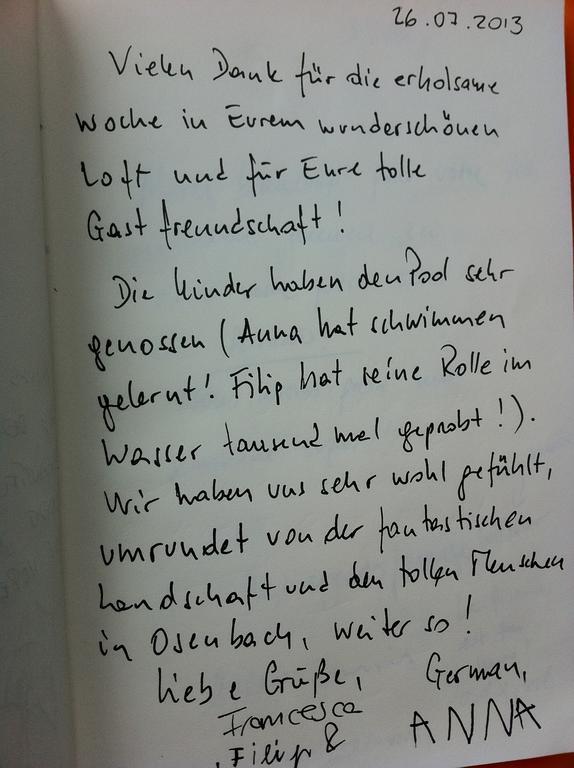 26.07.2013
Vielen Dank für die erholsame
Woche in Eurem wunderschönen
Loft und für Eure tolle
Gastfreundschaft!
Die Kinder haben den Pool sehr
genossen (Anna hat schwimmen
gelernt! Filip hat seine Rolle im
Wasser tausend mal geprobt!).
Wir haben uns sehr wohl gefühlt,
umrundet von der fantastischen
Landschaft und den tollen Menschen
in Osenbach, weiter so!
Liebe Grüße, German,
Francesca
Filip & ANNA